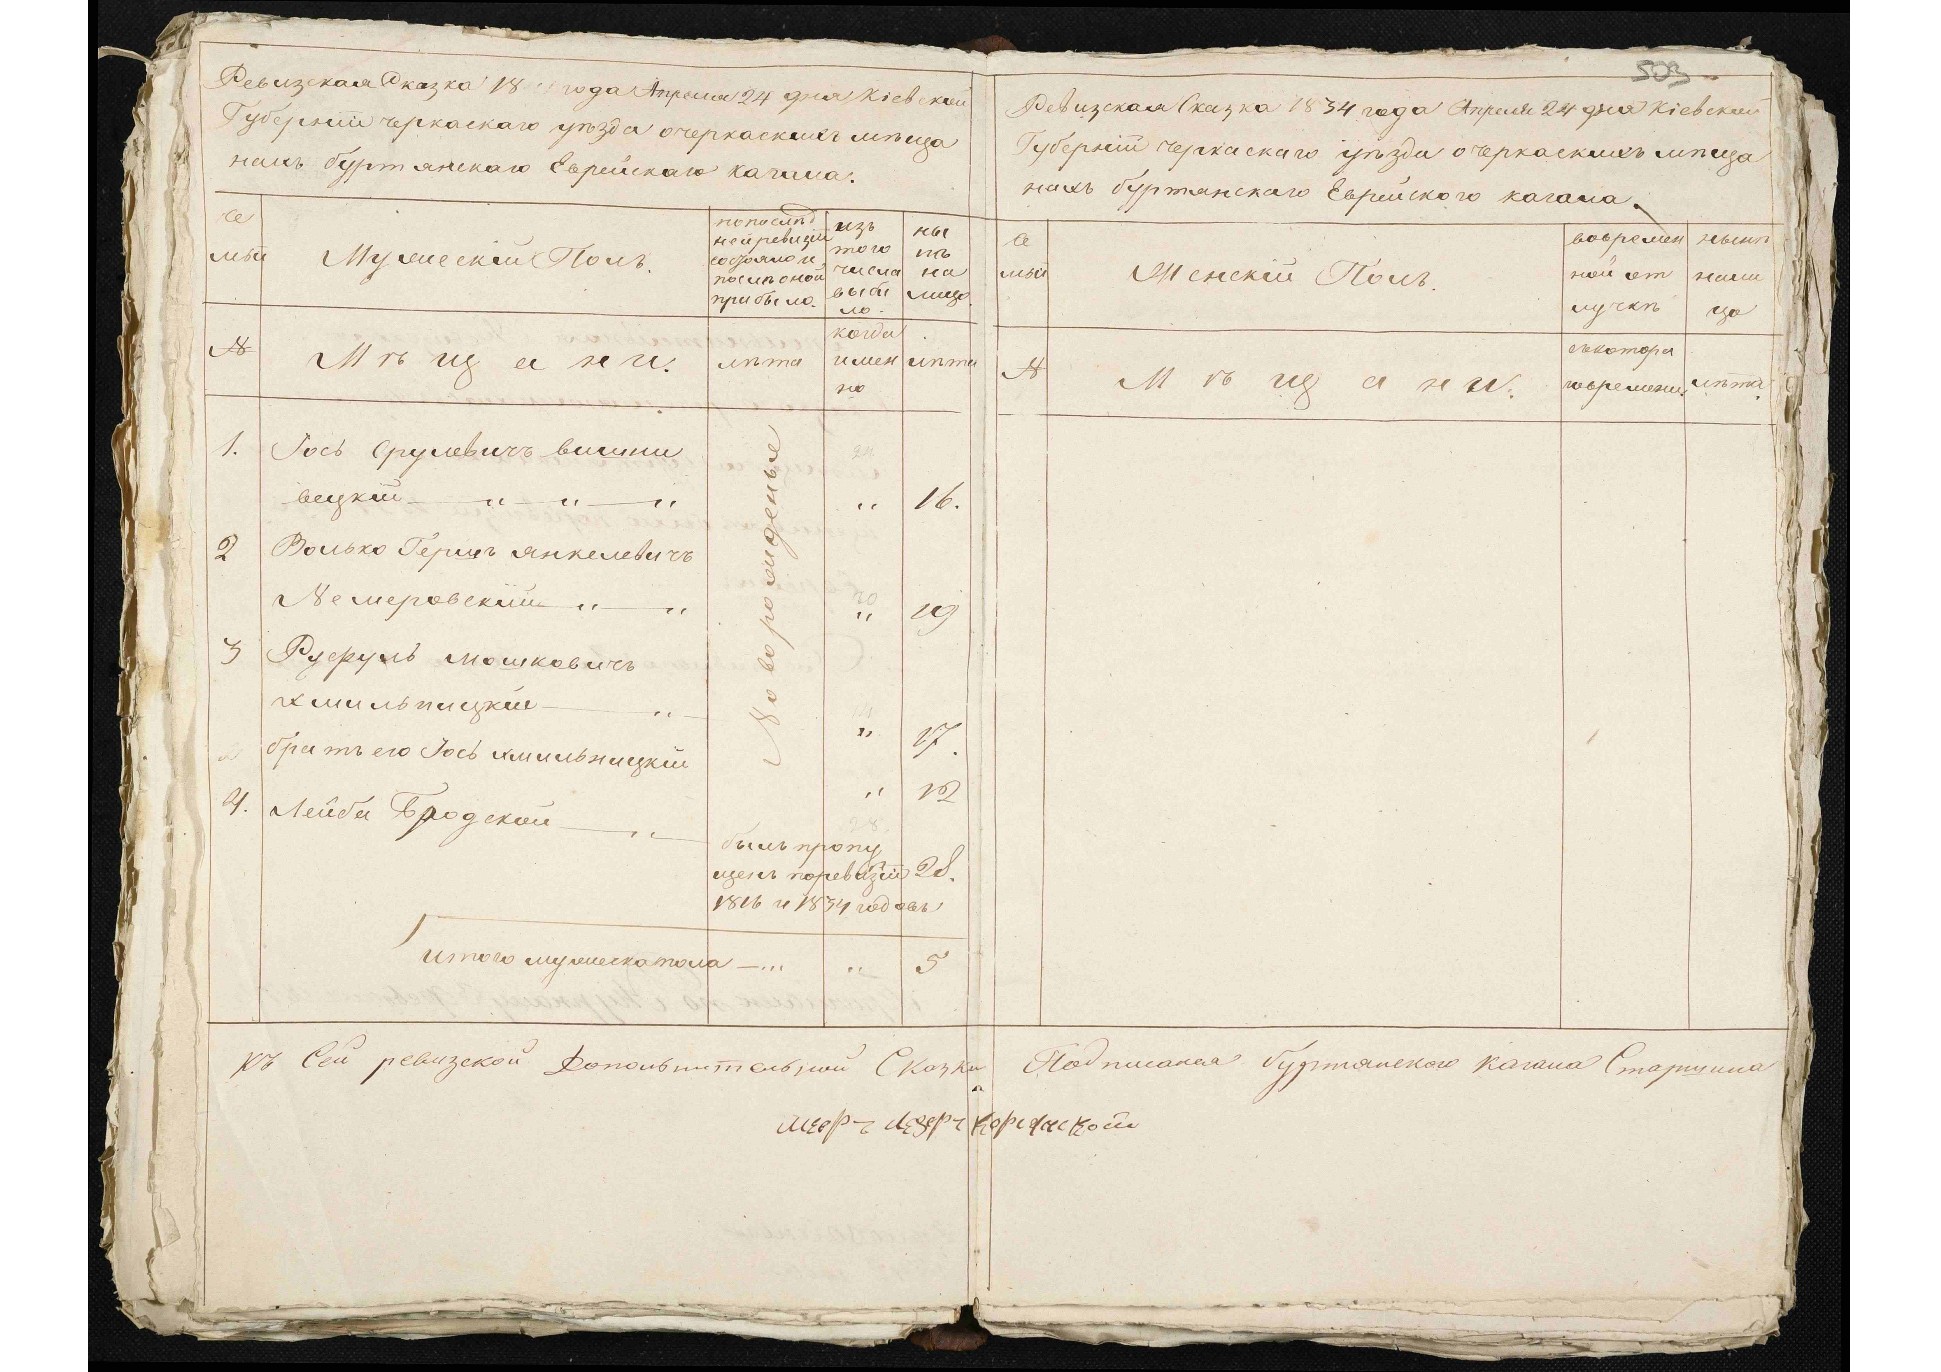 Ревизская Сказка 18 года Апреля 24 дня Кіевской
Губерніи черкаскаго уѣзда о черкаскихъ мѣща
нахъ буртянскаго Еврейскаго кагала.
се
мьи
Мужескій Полъ.
по послѣд
ней ревизіи
состояло и
после оной
прибыло.
изъ
того
числа
выбы
ло.
ны
нѣ
на
лицо.
№
Мѣщани.
лѣта
когда
имен
но
лѣта
1. Іось Срулевичъ вишни
вецкій — " — " — " " 16.
2 Волько Гершъ янкелевичъ
Немеровскій — " — " " 19
3 Русуль мошковичъ
хмильницкій — " " 17.
братъ его Іось хмильницкій " 12
4. Лейба Бродской — "
Новорожденые
былъ пропу
щенъ поревизіи 28.
1816 и 1834 годовъ
итого мужеска пола — " " 5
503
Ревизская Сказка 1834 года Апреля 24 дня Кіевской
Губерніи черкаскаго уѣзда о черкаскихъ мѣща
нахъ буртянскаго Еврейского кагала.
се
мьи
Женскій Полъ.
вовремен
ной от
лучкѣ
нынѣ
нали
цо
№
Мѣщани.
съкотора
говремени.
лѣта.
Къ Сей ревизской Дополнительной Сказки Подписался буртянского Кагала Старшина